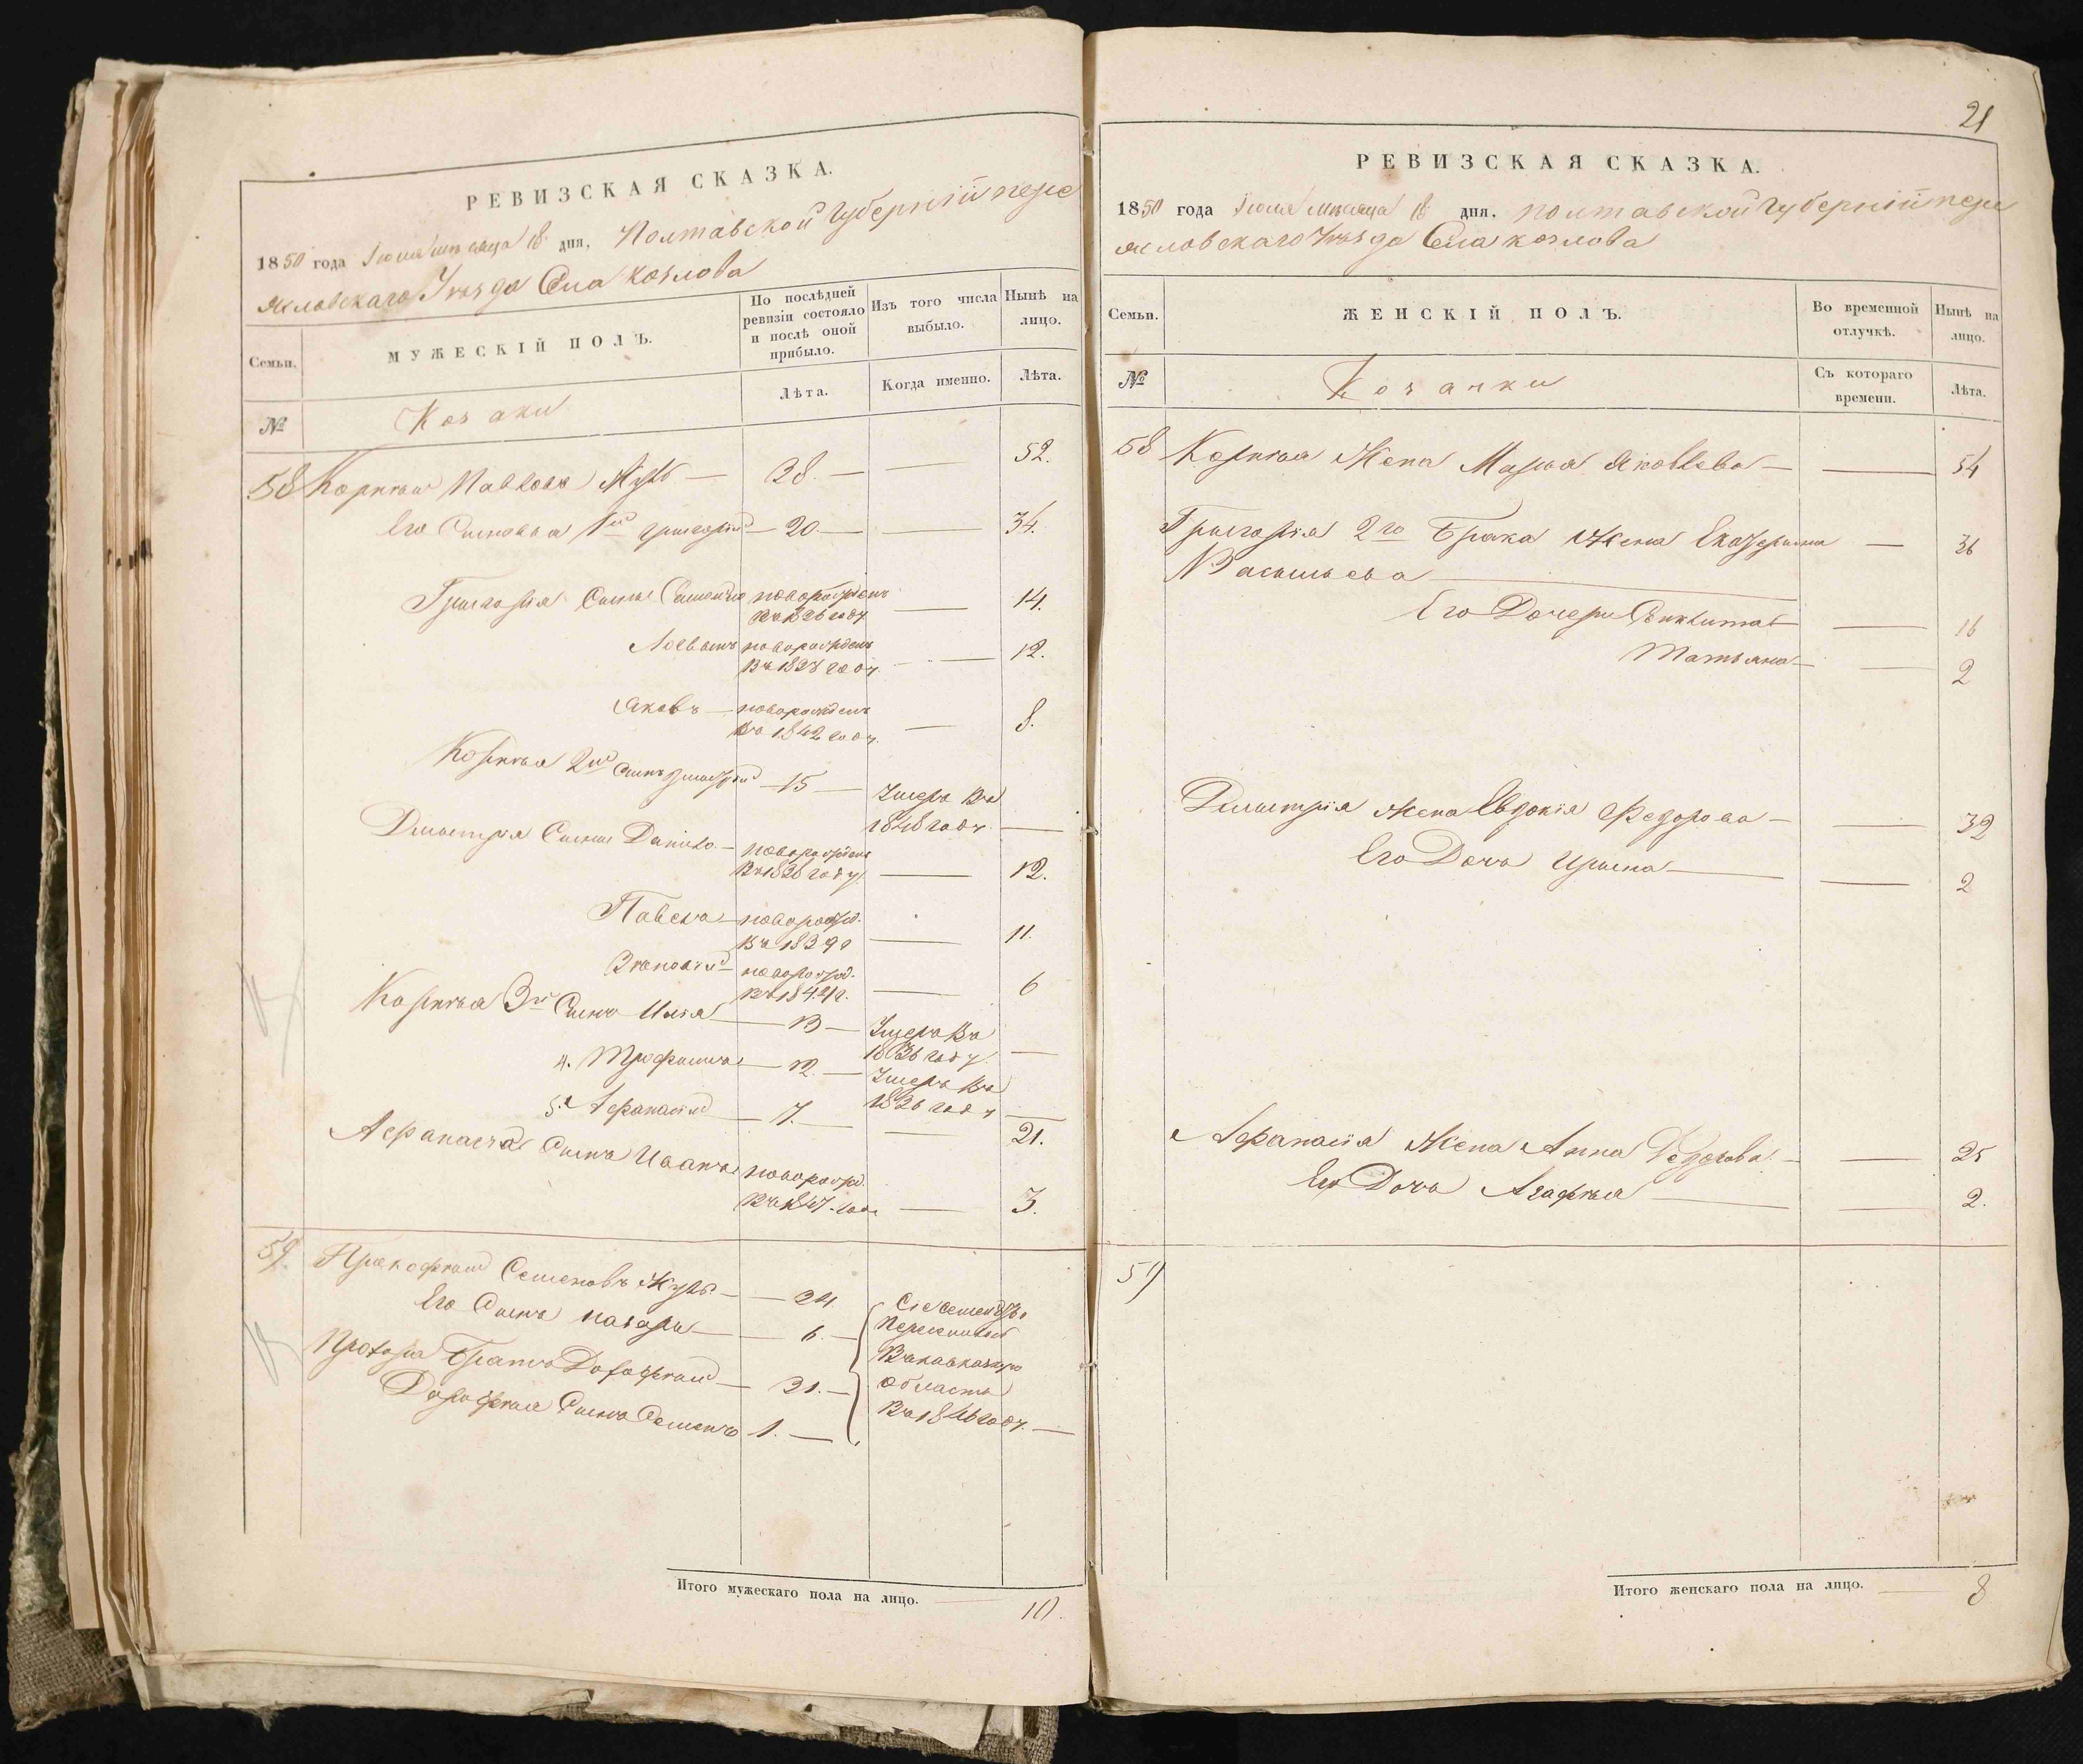 РЕВИЗСКАЯ СКАЗКА.
1850 года Іюня мѣсяца 18 дня, Полтавской Губерніи пере
яславскаго Уѣзда Села козлова
Семьи.
МУЖЕСКІЙ ПОЛЪ.
По послѣдней ревизіи состояло и послѣ оной прибыло.
Изъ того числа выбыло.
Нынѣ на лицо.
№
Козаки
Лѣта.
Когда именно.
Лѣта.
58 Корнѣй Павловъ — 28. — — 52.
Его Сыновья 1й григорій — 20. — — 34.
Григорія Сыны новорожденъ
въ 1836 году — 14.
новорожденъ
въ 1838 году — 12.
Яковъ — новорожденъ
въ 1842 году. — 8.
Корнѣя 2й Сынъ Дмитрій — 15 — Умеръ въ
1848 году. —
Дмитрія Сыны Данило — новорожденъ
въ 1838 году — 12.
Павелъ — новорожд.
въ 1839 — 11.
новорожд.
въ 1844 г. — 6
Корнѣя 3й Сынъ Илья — 13 — Умеръ въ
1836 году. —
4. Трофимъ — 12. — Умеръ въ
1836 году —
5.й Афанасій — 7. — — 21.
Афанасья Сынъ Иванъ новорожд.
въ 1847. году — 3.
59. Прокофій Семеновъ — 24
Его Сынъ назаръ — 6. —
Братъ Дорофѣй — 21. —
Дорофѣя Сынъ Семенъ 1. —
Сіе Семейство
Переселилось
въ кавказскую
область
въ 1846 году. —
Итого мужескаго пола на лицо. — 10.
21
РЕВИЗСКАЯ СКАЗКА.
1850 года Іюня мѣсяца 18 дня, полтавской Губерніи пере
яславскаго Уѣзда Села козлова
Семьи.
ЖЕНСКІЙ ПОЛЪ.
Во временной отлучкѣ.
Нынѣ на лицо.
№
Козачки
Съ котораго времени.
Лѣта.
58 Корнѣя Жена Марья Яковлева — — 54
Григорія 2го Брака Жена Екатерина — 36
Васильева
Его Дочери — 16
Татьяна — — 2
Дмитрія Жена Евдокія Федорова — — 32
Его Дочь Ирина — — 2
Афанасія Жена Анна Федорова — — 25
Его Дочь Агафья — — 2.
59
Итого женскаго пола на лицо. — 8